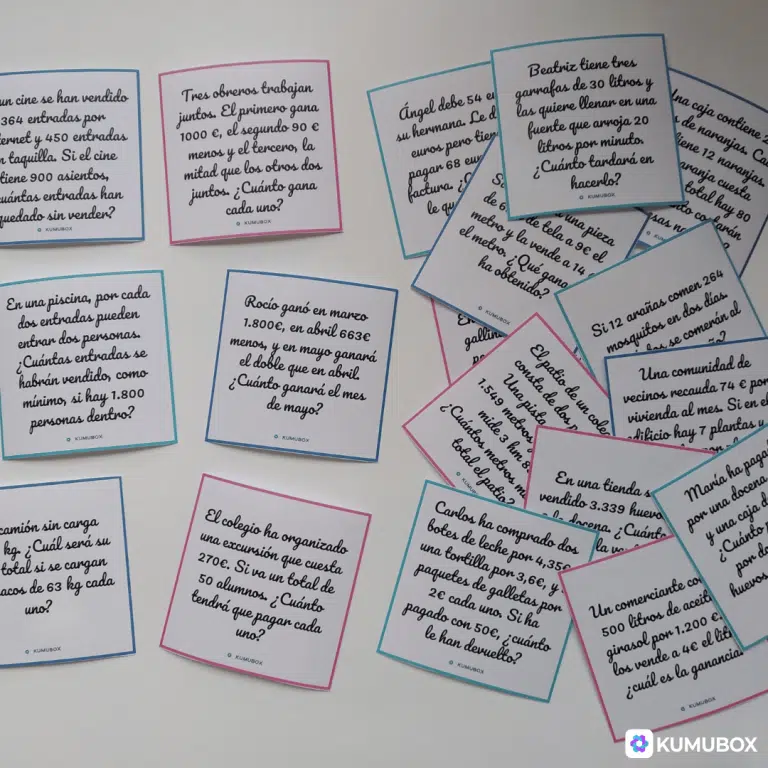 un cine se han vendido
364 entradas por
450 entradas
taquilla. Si el cine
tiene 900 asientos,
entradas han
quedado sin vender?
KUMUBOX
Tres obreros trabajan
juntos. El primero gana
1000 €, el segundo 90 €
menos y el tercero, la
mitad que los otros dos
juntos. ¿Cuánto gana
cada uno?
KUMUBOX
Ángel debe 54
su hermana. Le
euros pero
pagar 68
factura.
le
Beatriz tiene tres
garrafas de 30 litros y
las quiere llenar en una
fuente que arroja 20
litros por minuto.
¿Cuánto tardará en
hacerlo?
KUMUBOX
caja contiene
de naranjas.
12 naranjas.
cuesta
total hay 80
una pieza
de tela a 9€ el
metro y la vende a 14
el metro. ¿Qué
ha obtenido?
KUMUBOX
En una piscina, por cada
dos entradas pueden
entrar dos personas.
¿Cuántas entradas se
habrán vendido, como
mínimo, si hay 1.800
personas dentro?
KUMUBOX
Rocío ganó en marzo
1.800€, en abril 663€
menos, y en mayo ganará
el doble que en abril.
¿Cuánto ganará el mes
de mayo?
KUMUBOX
Si 12 arañas comen 264
mosquitos en dos días,
se comerán al
El patio de un
consta de dos
Una pista
1.549 metros
mide 3 hm
¿Cuántos metros
total el patio?
Una comunidad de
vecinos recauda 74 € por
vivienda al mes. Si en el
edificio hay 7 plantas y
camión sin carga
kg. ¿Cuál será su
total si se cargan
de 63 kg cada
uno?
KUMUBOX
El colegio ha organizado
una excursión que cuesta
270€. Si va un total de
50 alumnos. ¿Cuánto
tendrá que pagar cada
uno?
KUMUBOX
Carlos ha comprado dos
botes de leche por 4,35€
una tortilla por 3,6€, y
paquetes de galletas por
2€ cada uno. Si ha
pagado con 50€, ¿cuánto
le han devuelto?
KUMUBOX
En una tienda
vendido 3.339
docena.
María ha
por una docena
y una caja
Un comerciante
500 litros de
girasol por 1.200 €.
los vende a 4€ el
¿cuál es la
KUMUBOX
KUMUBOX